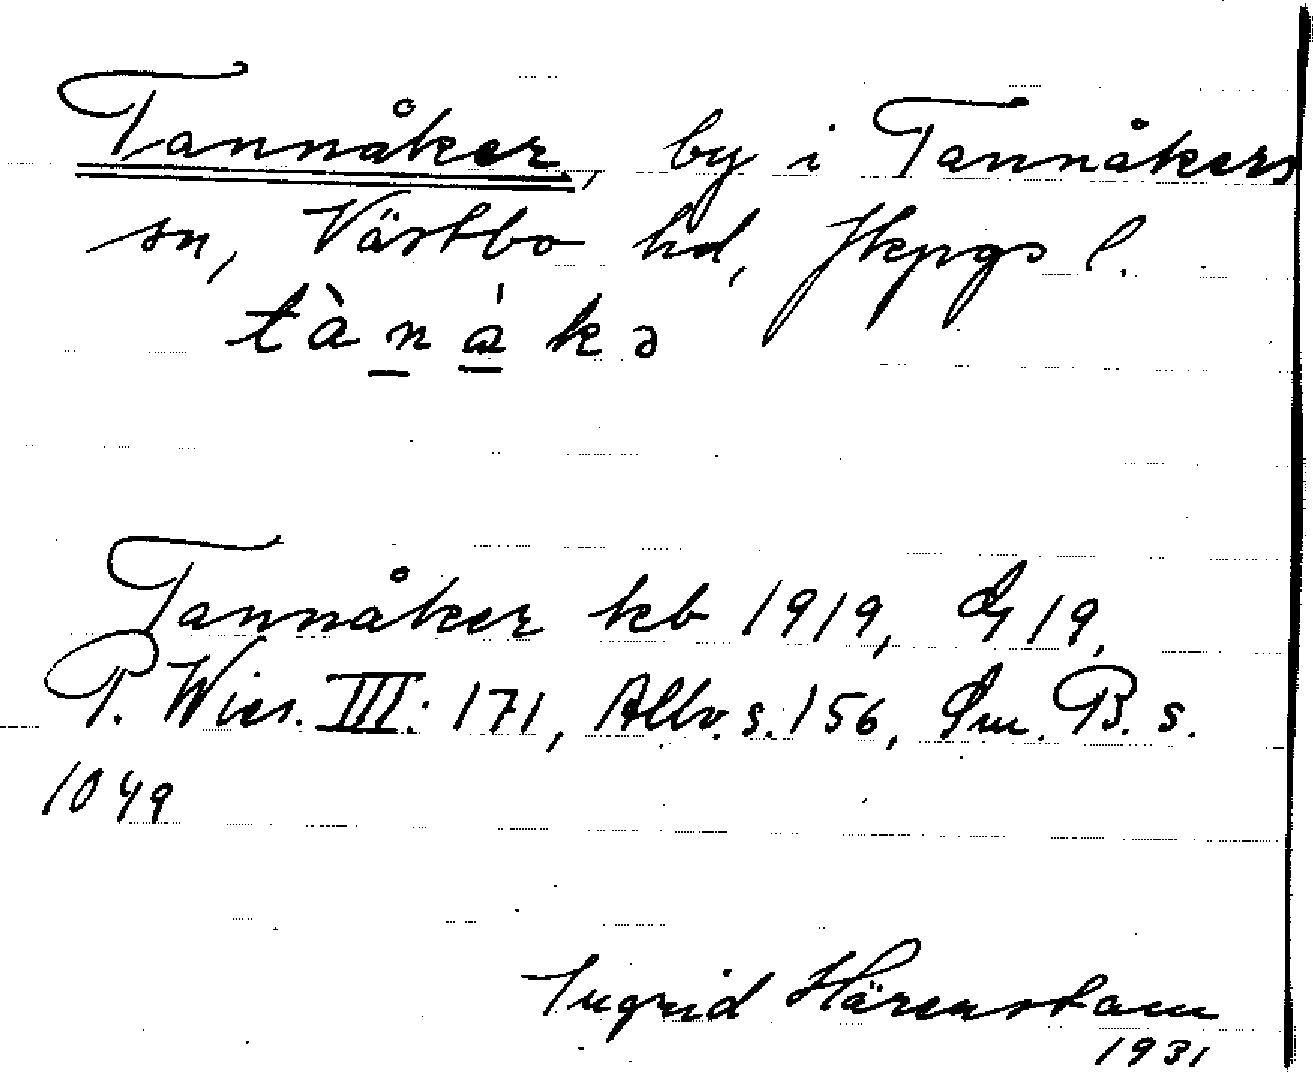 Tannåker, by i Tannåkers
sn, Västbo hd, Jkpgs l.
tànákə
Tannåker kb 1919, G 19,
P. Wies. III: 171, Allv. s. 156, Sm. B. s.
1049
Ingrid Härenstam
1931